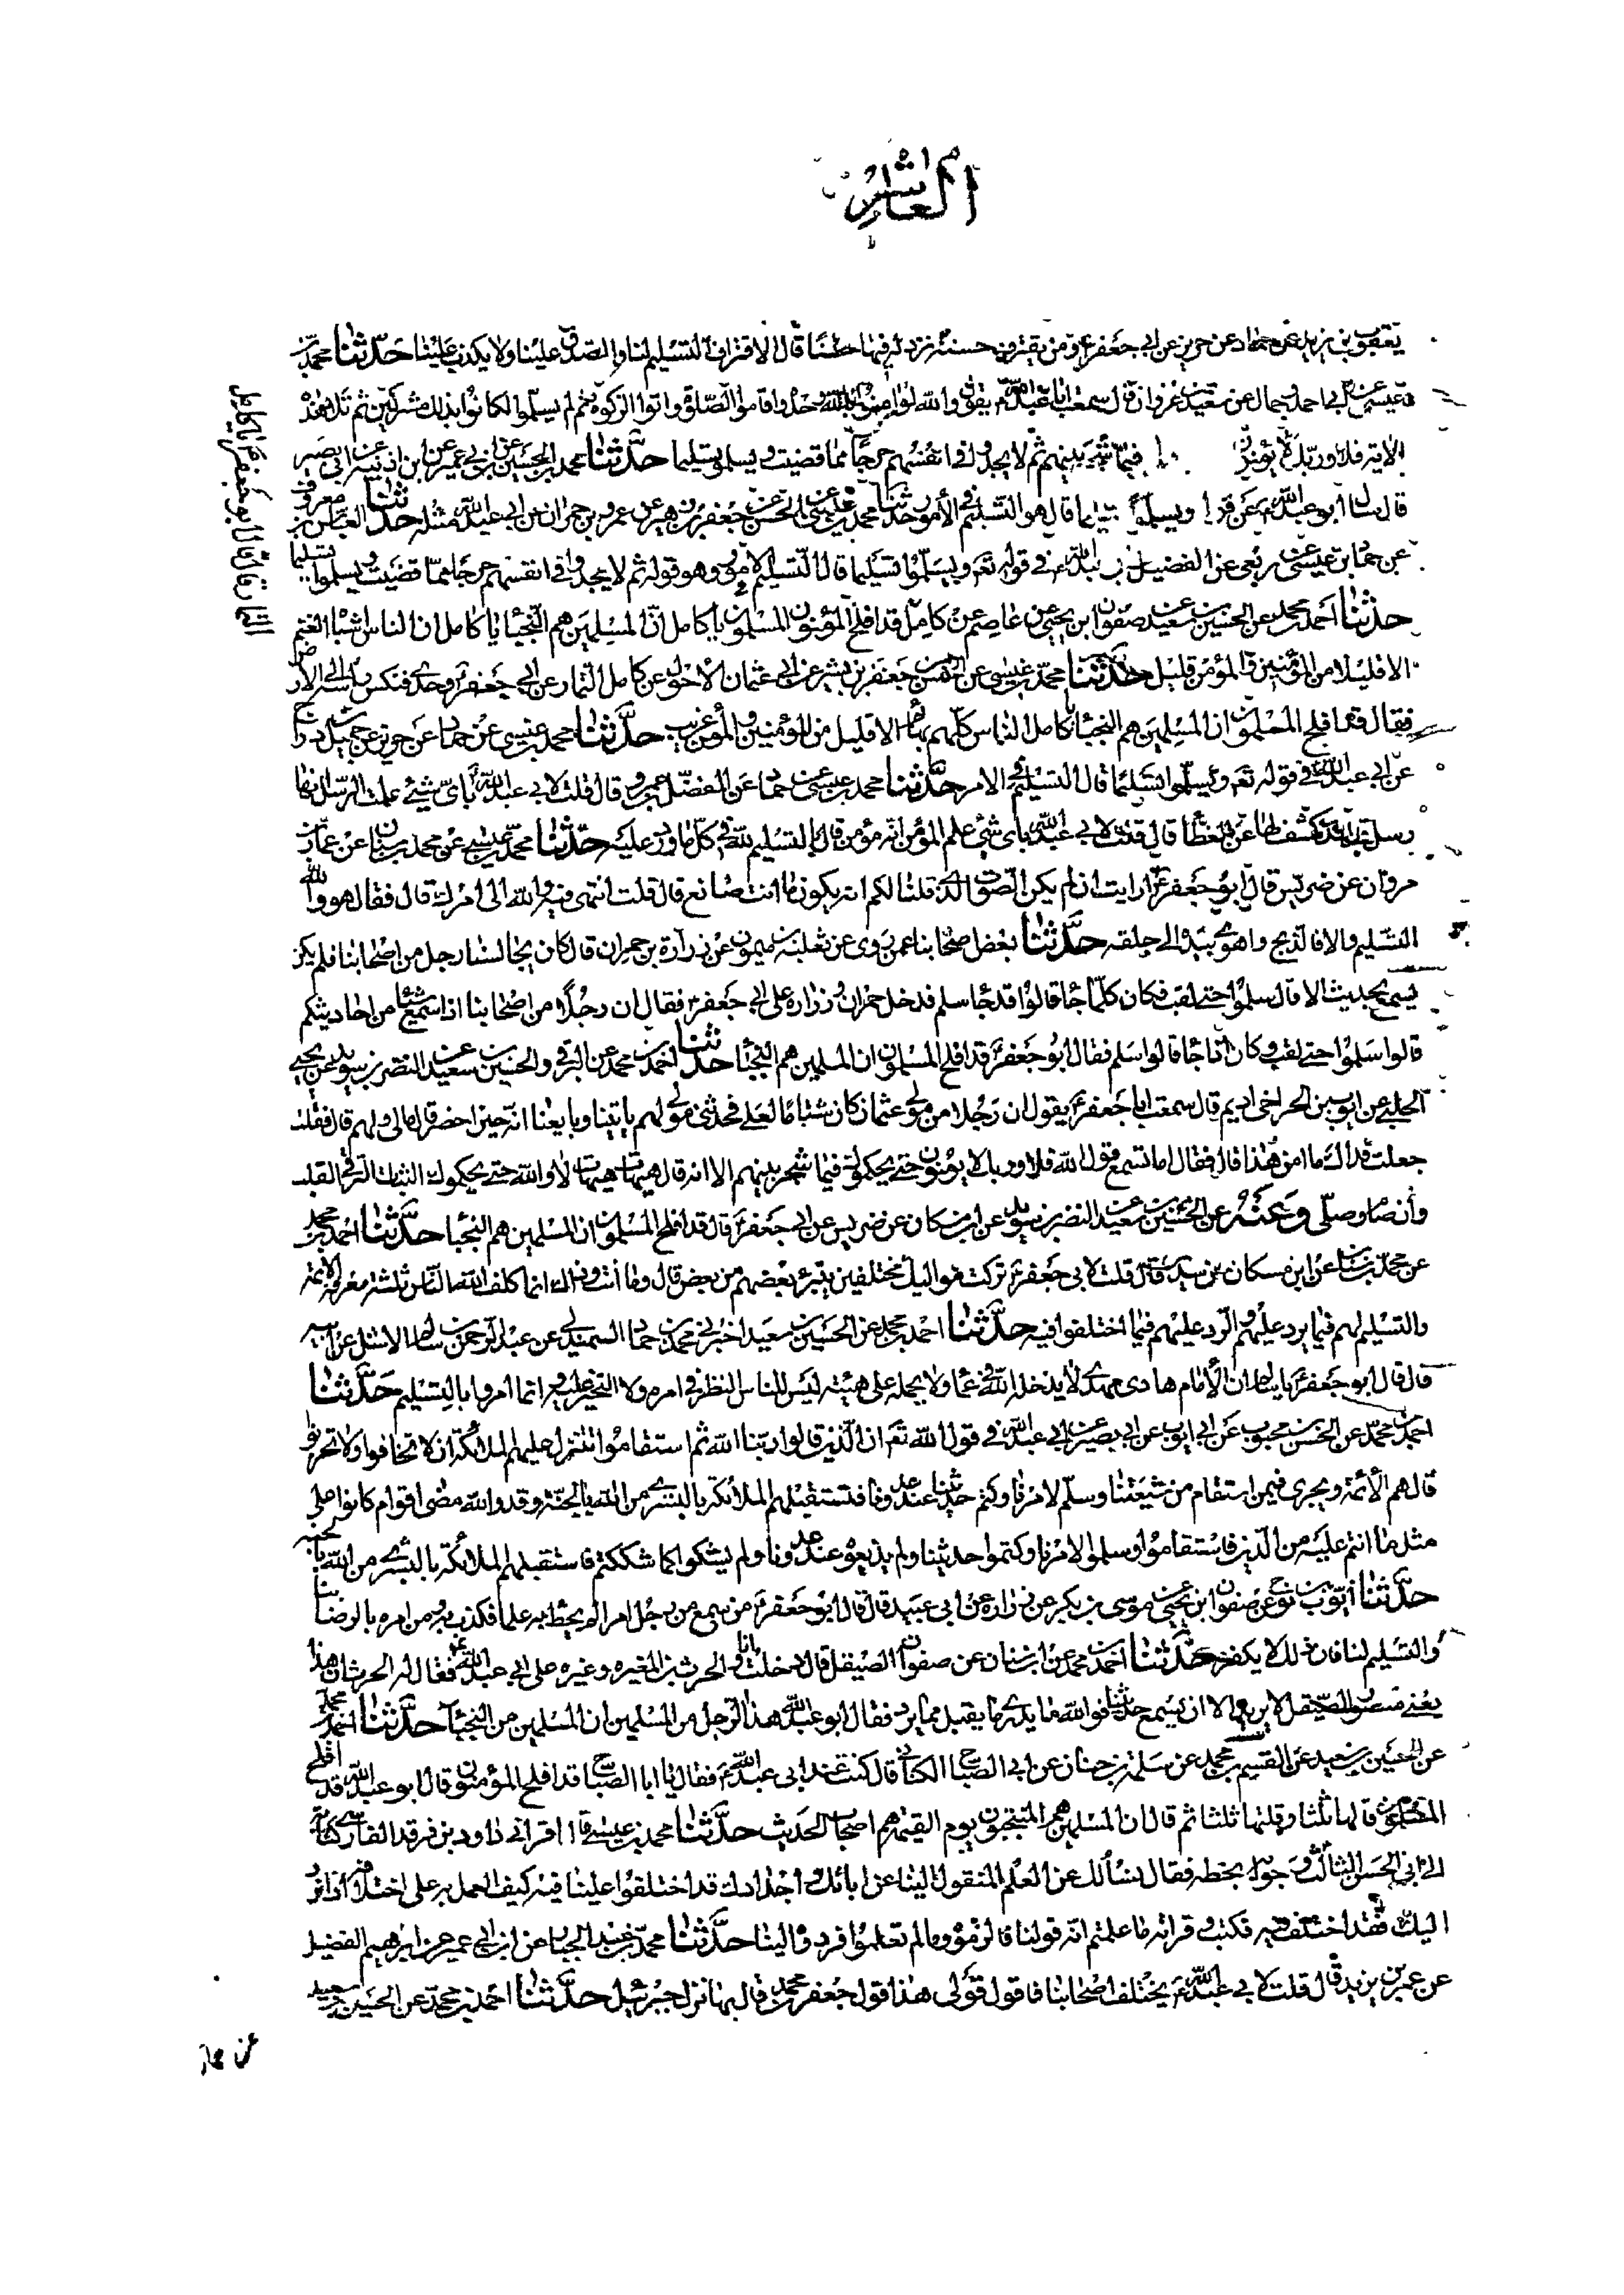 العاشر
يعقوب بن يزيد عن حماد عن حريز عن ابى جعفر ع ومن يقترف حسنة نزد له فيها حسنا قال الاقتراف التسليم لنا والصدق علينا ولا يكذب علينا حدثنا محمد بن
عيسى عن سعيد بن غزوان قال سمعت ابا عبد الله ع يقول والله لو امنوا بالله وحده واقاموا الصلوة واتوا الزكوة ثم لم يسلموا لكانوا بذلك مشركين ثم تلا هذه
الاية فلا وربك لا يؤمنون فيما شجر بينهم ثم لا يجدوا فى انفسهم حرجا مما قضيت ويسلموا تسليما حدثنا محمد بن الحسين عن ابن ابى عمير عن ابن اذينه عن ابى بصير
قال سال ابو عبد الله ع عن ويسلموا تسليما قال هو التسليم فى الامور حدثنا محمد بن عيسى عن الحسن عن جعفر بن زهير عن عمرو بن حمران عن ابى عبد الله مثله حدثنا العباس بن معروف
عن حماد بن عيسى عن ربعى عن الفضيل عن ابى عبد الله ع فى قوله تع ويسلموا تسليما قال التسليم فى الامور وهو قوله ثم لا يجدوا فى انفسهم حرجا مما قضيت ويسلموا تسليما
حدثنا احمد بن محمد عن الحسين بن سعيد عن صفوان ابن يحيى عن عاصم عن كامل قد افلح المؤمنون المسلمون يا كامل ان المسلمين هم النجباء يا كامل ان الناس اشباه الغنم
الا قليلا من المؤمنين والمؤمن قليل حدثنا محمد بن عيسى عن الحسن بن جعفر بن بشير عن ابى عثمان الاحول عن كامل التمار عن ابى جعفر ع وحدى فنكس راسه الى الارض
فقال قد افلح المسلمون ان المسلمين هم النجباء يا كامل الناس كلهم بهائم الا قليل من المؤمنين والمؤمن غريب حدثنا محمد بن عيسى عن حماد عن حريز عن جميل بن دراج
عن ابى عبد الله فى قوله تع ويسلموا تسليما قال التسليم فى الامر حدثنا محمد بن عيسى عن حماد عن المفضل بن عمر قال قلت لابى عبد الله باى شىء علمت الرسل انها
رسل قال قد كشف لها عن الغطا قال قلت لابى عبد الله باى شىء علم المؤمن انه مؤمن قال بالتسليم لله فى كل ما ورد عليه حدثنا محمد بن عيسى عن محمد بن سنان عن عمار بن
مروان عن ضريس قال ابو جعفر ع ارايت ان لم يكن الصوت الذى قلنا لكم انه يكون ما انت صانع قال قلت انتهى فيه والله الى امرك قال فقال هو والله
التسليم والا فالذبح واهوى بيده الى حلقه حدثنا بعض اصحابنا عمن روى عن ثعلبة بن ميمون عن زرارة بن حمران قال كان يجالسنا رجل من اصحابنا فلم يكن
يسمع بحديث الا قال سلموا حتى لقب فكان كلما جا قالوا قد جا سلم فدخل حمران وزراره على ابى جعفر ع فقال ان رجلا من اصحابنا اذا سمع شيئا من احاديثكم
قالوا سلموا حتى لقب وكان اذا جا قالوا سلم فقال ابو جعفر ع قد افلح المسلمون ان المسلمين هم النجبا حدثنا احمد بن محمد عن البرقى والحسين بن سعيد عن النضر بن سويد عن يحيى
الحلبى عن ايوب بن الحر اخى اديم قال سمعت ابا جعفر ع يقول ان رجلا من مولى عثمان كان شتاما لعلى فحدثنى مولى لهم ياتينا ويبايعنا انه حين احضر قال مالى ولهم قال فقلت
جعلت فداك ما امن هذا قال فقال اما تسمع قول الله فلا وربك لا يؤمنون حتى يحكموك فيما شجر بينهم الا انه قال هيهات هيهات لا والله حتى يحكموك الثبات الشك فى القلب
وان صام وصلى وعنه عن الحسين بن سعيد عن النضر بن سويد عن ابن مسكان عن ضريس عن ابى جعفر ع قال قد افلح المسلمون ان المسلمين هم النجبا حدثنا احمد بن محمد
عن محمد بن سنان عن ابن مسكان عن سدير قال قلت لابى جعفر ع تركت مواليك مختلفين يتبرء بعضهم من بعض قال وما انت وذاك انما كلف الله الناس ثلثة معرفة الائمة
والتسليم لهم فيما يرد عليهم والرد عليهم فيما اختلفوا فيه حدثنا احمد بن محمد عن الحسين بن سعيد اخبرنى محمد بن حماد السمندلى عن عبد الرحمن بن سالم الاشل عن ابيه
قال قال ابو جعفر ع يا سالم ان الامام هادى مهدى لا يدخله الله فى عما ولا يحمله على هيئة ليس للناس النظر فى امره ولا التخير عليه وانما امروا بالتسليم حدثنا
احمد بن محمد عن الحسن بن محبوب عن ابى ايوب عن ابى بصير عن ابى عبد الله فى قول الله تع ان الذين قالوا ربنا الله ثم استقاموا تتنزل عليهم الملائكة ان لا تخافوا ولا تحزنوا
قال هم الائمة ويجرى فيمن استقام من شيعتنا وسلم لامرنا وكتم حديثنا عند عدونا فتستقبلهم الملائكة بالبشرى من الله بالجنة وقد والله مضى اقوام كانوا على
مثل ما انتم عليه من الذين فاستقاموا وسلموا لامرنا وكتموا حديثنا ولم يذيعوه عند عدونا ولم يشكوا كما شككتم فاستقبلهم الملائكة بالبشرى من الله بالجنه
حدثنا ايوب بن نوح عن صفوان ابن يحيى عن موسى بن بكير عن زراره عن ابى عبيده قال قال ابو جعفر ع من سمع من رجل امرا لم يحط به علما فكذب به ومن امره بالرضا بنا
والتسليم لنا فان ذلك لا يكفره حدثنا احمد بن محمد عن ابن سنان عن صفوان الصيقل قال دخلت انا والحرث بن المغيره وغيره على ابى عبد الله ع فقال له الحرث ان هذا
يعنى منصور الصيقل لا يريد الا ان يسمع حديثنا فوالله ما يدرى ما يقبل مما يرد فقال ابو عبد الله هذا الرجل من المسلمين ان المسلمين من النجبا حدثنا احمد بن محمد
عن الحسين بن سعيد عن القسم بن محمد عن سلمة بن حنان عن ابى الصباح الكنانى قال كنت عند ابى عبد الله ع فقال يا ابا الصباح قد افلح المؤمنون قال ابو عبد الله قد افلح
المسلمون قالها ثلثا وقلتها ثلثا ثم قال ان المسلمين هم المنتجبون يوم القيمة هم اصحاب الحديث حدثنا محمد بن عيسى قال اقرانى داود بن فرقد الفارسى كتابه
الى ابى الحسن الثالث وجوابه بخطه فقال نسالك عن العلم المنقول الينا عن ابائك واجدادك قد اختلفوا علينا فيه كيف العمل به على اختلافه اذا نرد
اليك فقد اختلف فيه فكتب وقراته ما علمتم انه قولنا فالزموه وما لم تعلموا فردوه الينا حدثنا محمد بن عبد الجبار عن ابن ابى عمير عن ابرهيم الفضيل
عن عمر بن يزيد قال قلت لابى عبد الله ع يختلف اصحابنا فاقول قولى هذا قول جعفر بن محمد قال بهذا نزل جبرئيل حدثنا احمد بن محمد عن الحسين بن سعيد